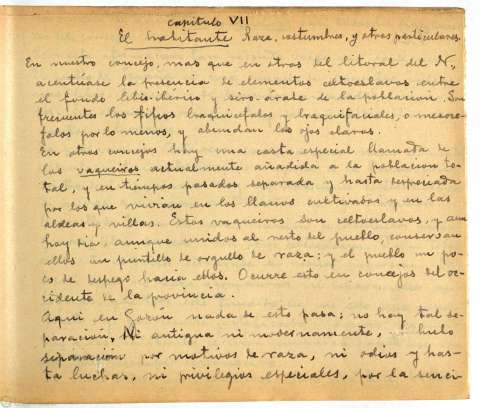 capitulo VII
El habitante Raza, costumbres, y otros particulares.
En nuestro concejo, mas que en otros del litoral del N,
acentúase la presencia de elementos celtoeslavos entre
el fondo libio-ibérico y siro-árabe de la poblacion. Son
frecuentes los tipos braquicefalos y braquifaciales, o mesocé-
falos por lo menos, y abundan los ojos claros.
En otros concejos hay una casta especial llamada de
los vaqueiros actualmente añadida a la poblacion to-
tal, y en tiempos pasados separada y hasta despreciada
por los que vivian en los llanos cultivados y en las
aldeas y villas. Estos vaqueiros son celtoeslavos, y aun
hoy dia, aunque unidos al resto del pueblo, conservan
ellos un puntillo de orgullo de raza; y el pueblo un po-
co de despego hacia ellos. Ocurre esto en concejos del oc-
cidente de la provincia.
Aqui en Gozón nada de esto pasa; no hay tal se-
paración. Ni antigua ni modernamente, hubo
separación por motivos de raza, ni odios y has-
ta luchas, ni privilegios especiales, por la senci-